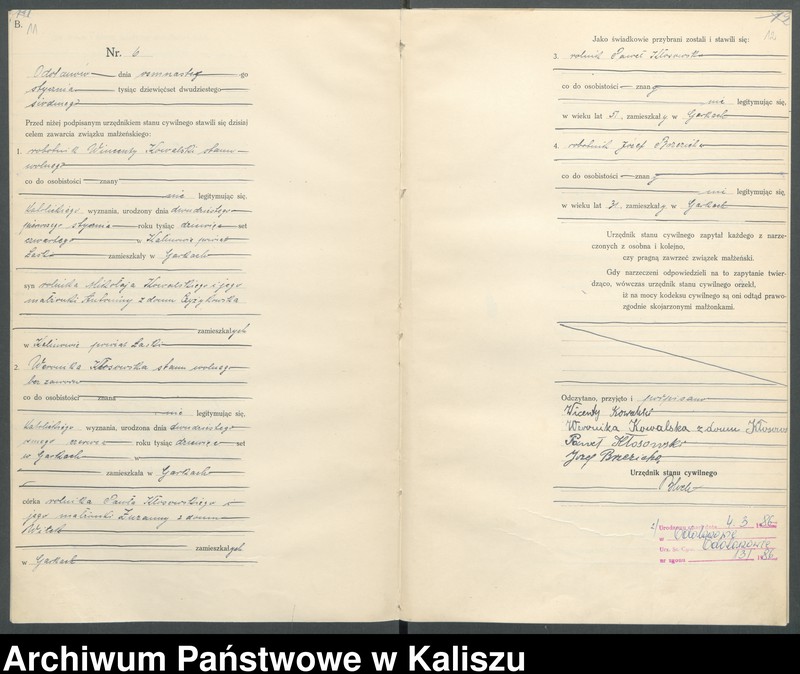 B.
11
Nr. 6
Odolanów dnia osmnastego
stycznia tysiąc dziewięćset dwudziestego
siódmego
Przed niżej podpisanym urzędnikiem stanu cywilnego stawili się dzisiaj
celem zawarcia związku małżeńskiego:
1. robotnik Wincenty Kowalski stanu
wolnego
co do osobistości znany
nie legitymując się,
katolickiego wyznania, urodzony dnia dwudziestego
pierwszego stycznia roku tysiąc dziewięć set
czwartego w Kalinowie powiat
Łask zamieszkały w Garkach
syn rolnika Mikołaja Kowalskiego i jego
małżonki Antoniny z domu
zamieszkałych
w Kalinowie powiat Łask
2. Weronika Kłosowska stanu wolnego
bez zawodu
co do osobistości znana
nie legitymując się,
katolickiego wyznania, urodzona dnia dwudziestego
ósmego czerwca roku tysiąc dziewięć set
w Garkach w
zamieszkała w Garkach
córka rolnika Pawła Kłosowskiego i
jego małżonki Zuzanny z domu
Witek
zamieszkałych
w Garkach
12
Jako świadkowie przybrani zostali i stawili się:
3. rolnik Paweł Kłosowski
co do osobistości znany
nie legitymując się,
w wieku lat 51, zamieszkały w Garkach
4. robotnik Józef Brzezicha
co do osobistości znany
nie legitymując się,
w wieku lat zamieszkały w Garkach
Urzędnik stanu cywilnego zapytał każdego z narze-
czonych z osobna i kolejno,
czy pragną zawrzeć związek małżeński.
Gdy narzeczeni odpowiedzieli na to zapytanie twier-
dząco, wówczas urzędnik stanu cywilnego orzekł,
iż na mocy kodeksu cywilnego są oni odtąd prawo-
zgodnie skojarzonymi małżonkami.
Odczytano, przyjęto i podpisano
Wicenty Kowalski
Wironika Kowalska z domu Kłosows
Paweł Kłosowski
Jozef Brzezicha
Urzędnik stanu cywilnego
4.3. 1986
w Odolanowie
Urz. St. Cyw. Odolanowie
nr zgonu 131 1986
Archiwum Państwowe w Kaliszu